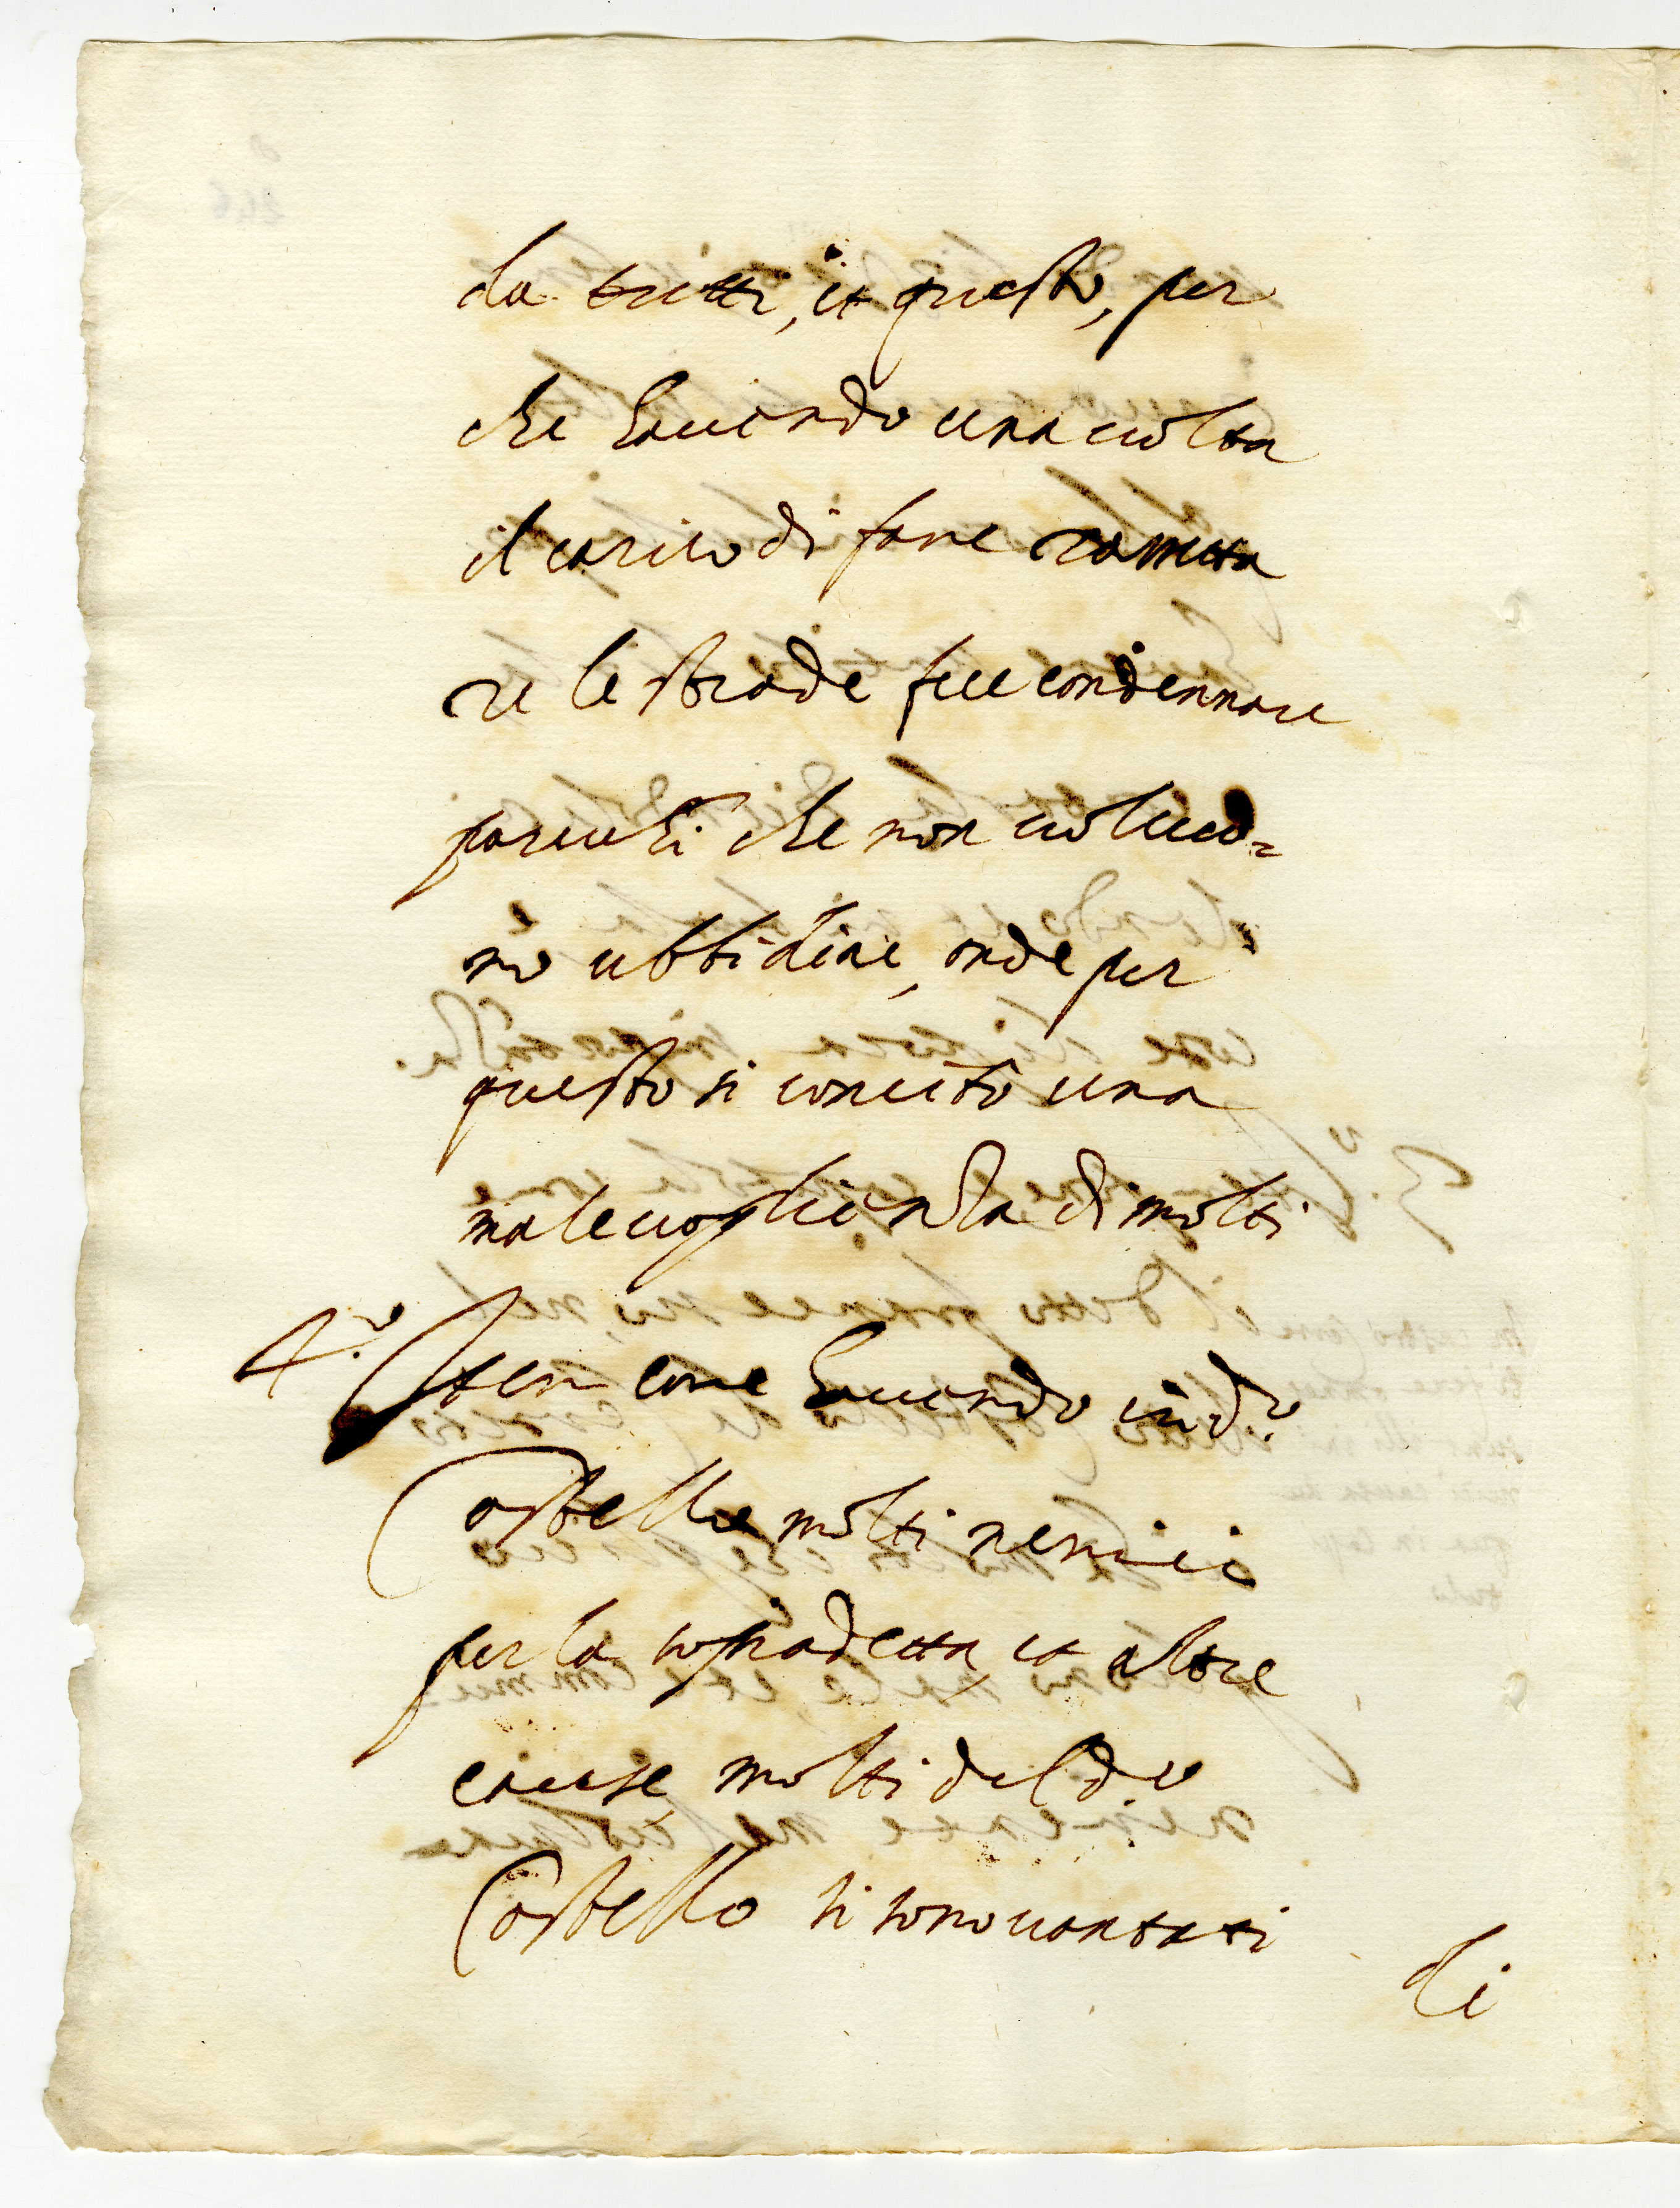 da tutti, et questo, per
che hauendo una uolta
il carico di fare rametta
re le strade fece condennare
parecchi che non uolleuo=
no ubbidire, onde per
questo si concitò una
maleuoglienza di molti
4.º Item come hauendo in d.º
Castello molti nemici
per la sopradetta, et altre
cause, molti del d.º
Castello si sono uantati
di